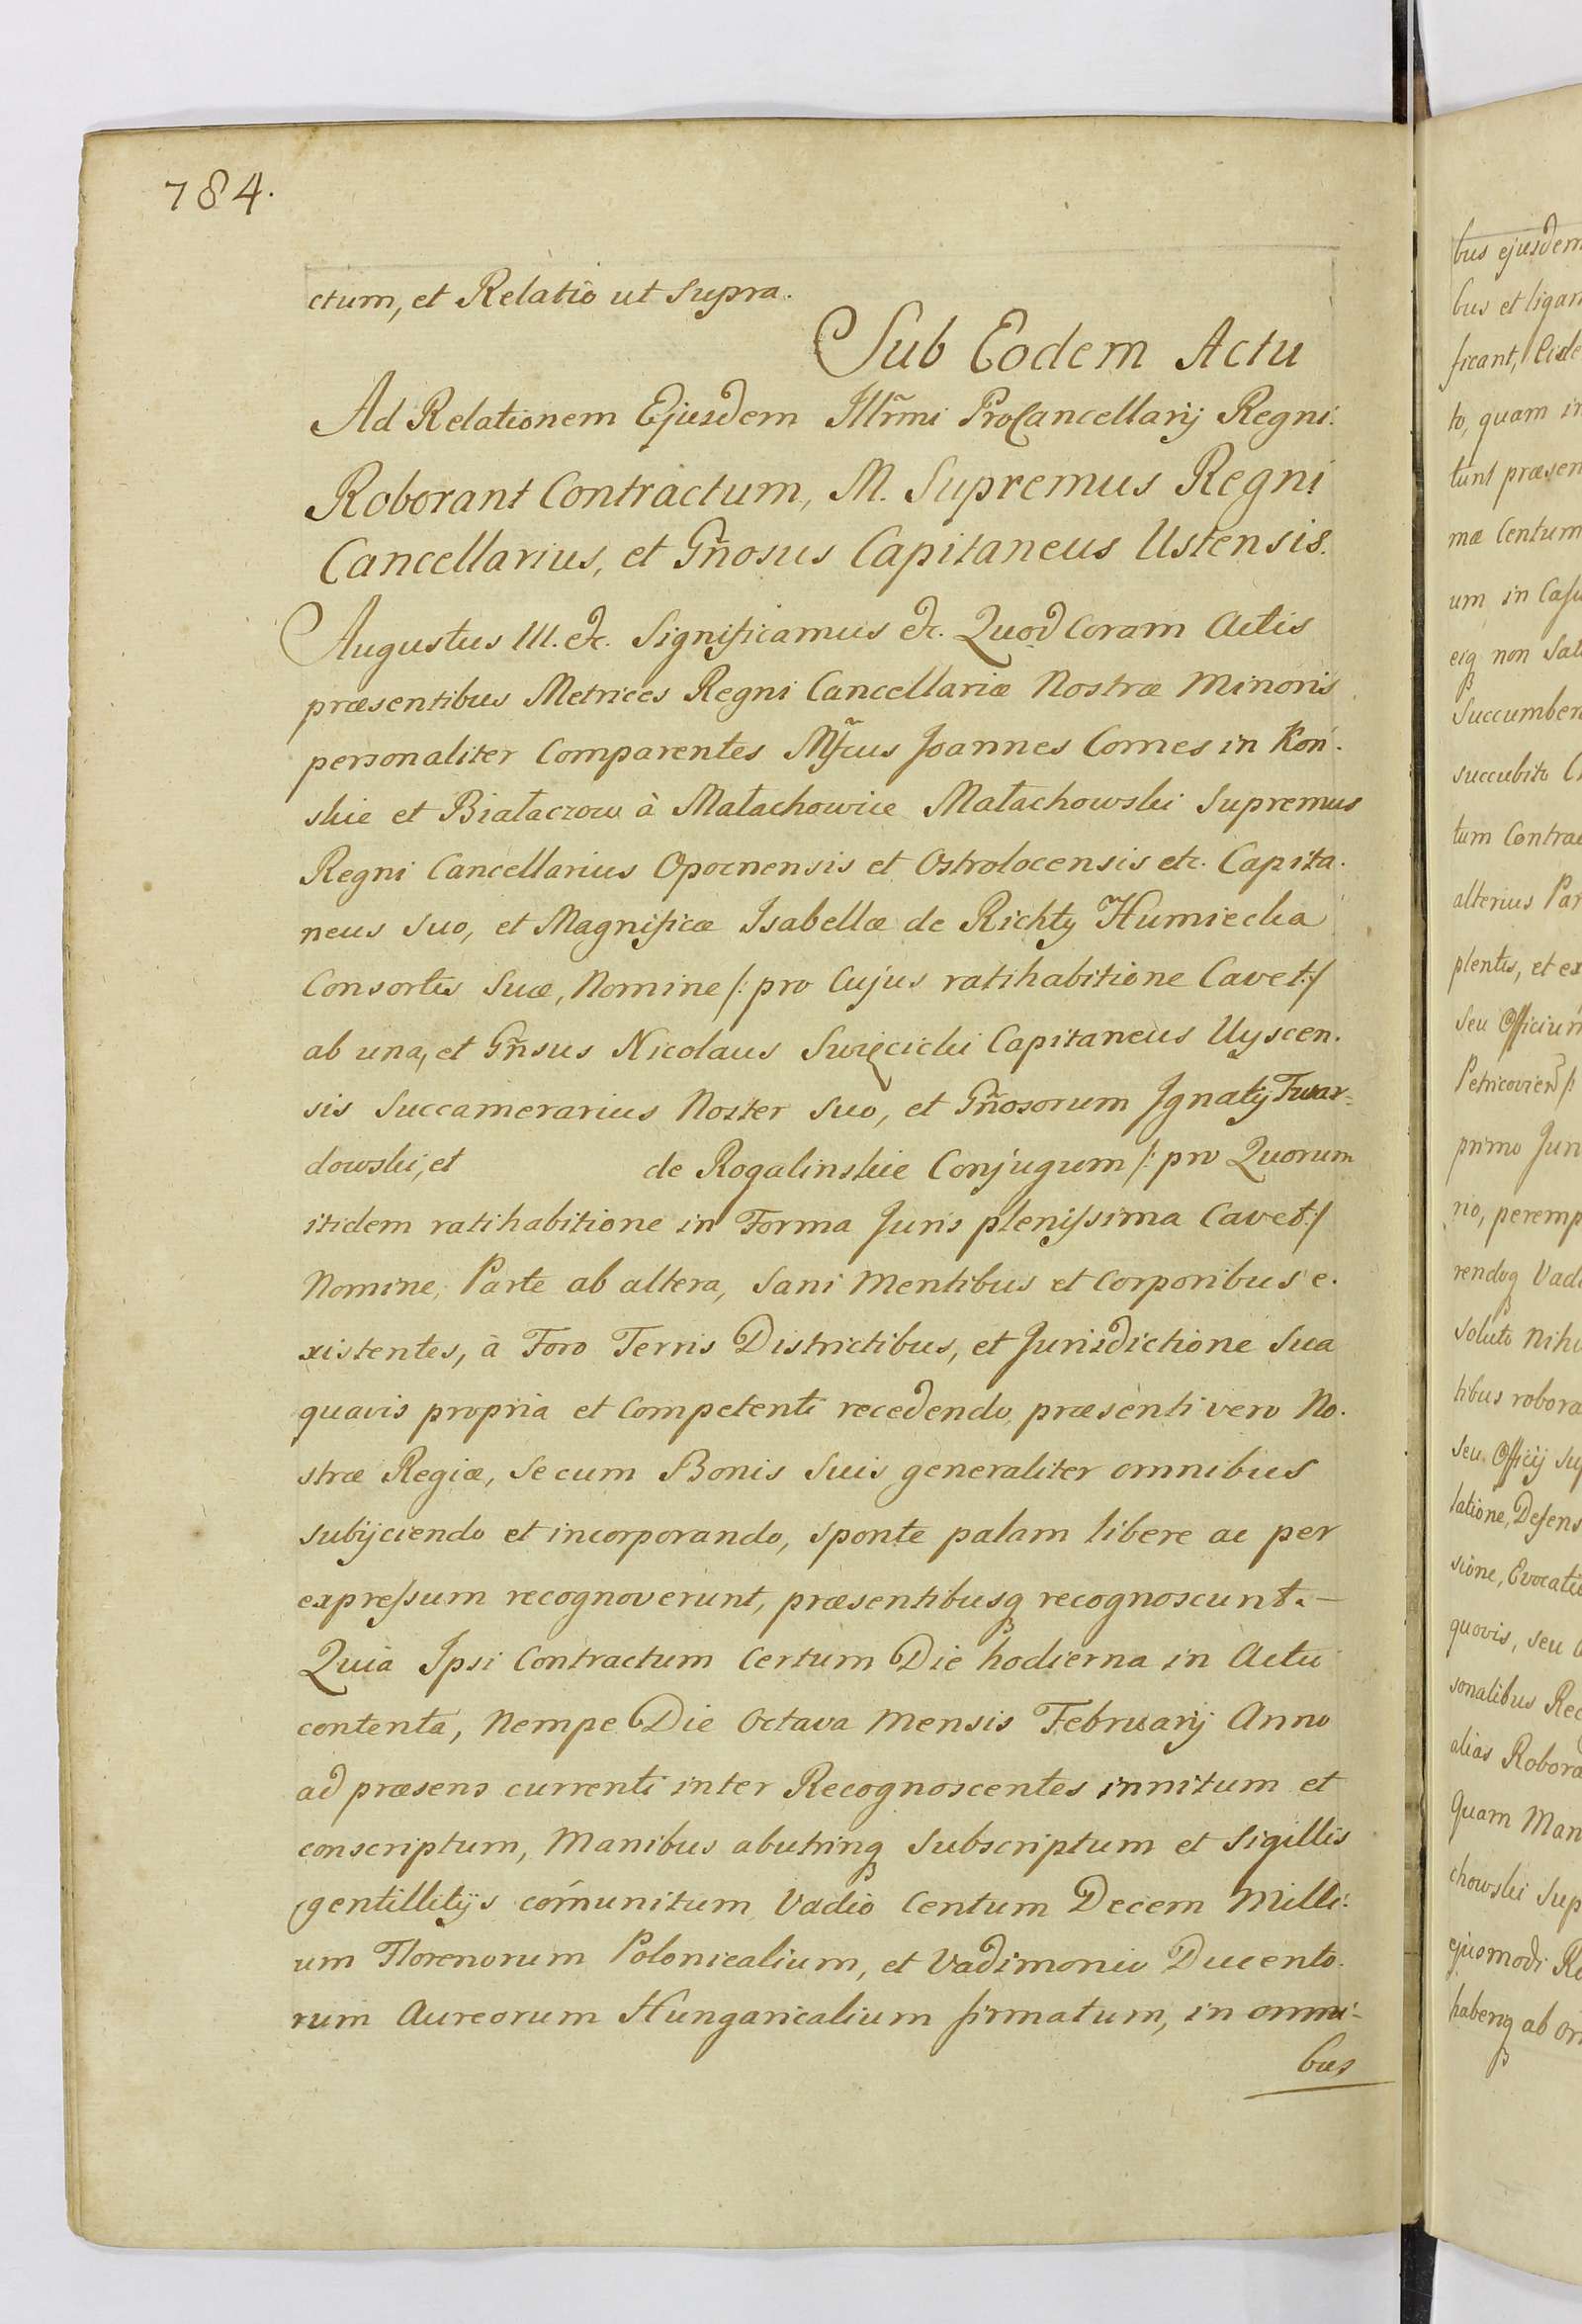 784.
ctum, et Relatio ut supra.
Sub Eodem Actu
Ad Relationem Ejusdem Illr̃mi ProCancellarij Regni.
Roborant Contractum, M. Supremus Regni
Cancellarius, et Gñosus Capitaneus Ustensis.
Augustus III. etc. Significamus etc. Quod Coram Actis
præsentibus Metrices Regni Cancellariæ Nostræ Minoris
personaliter Comparentes Mf̃cus Joannes Comes in Koń.
skie et Białaczow à Małachowice Małachowski Supremus
Regni Cancellarius Opocnensis et Ostrolocensis etc. Capita.
neus suo, et Magnificæ Isabellæ de Richty Humiecka
Consortis Suæ, Nomine /: pro Cujus ratihabitione Cavet :/
ab una, et Gñsus Nicolaus Swięcicki Capitaneus Uyscen.
sis Succamerarius Noster suo, et Gñosorum Ignatij Twar=
dowski, et de Rogalinskie Conjugum /: pro Quorum
itidem ratihabitione in Forma Juris plenissima Cavet :/
Nomine, Parte ab altera, Sani Mentibus et Corporibus e.
xistentes, à Foro Terris Districtibus, et Jurisdictione Sua
quavis propria et Competenti recedendo, præsenti vero No.
stræ Regiæ, Se cum Bonis Suis generaliter omnibus
subijciendo et incorporando, sponte palam libere ac per
expressum recognoverunt, præsentibusq recognoscunt. –
Quia Ipsi Contractum Certum Die hodierna in Actu
contenta, Nempe Die Octava Mensis Februarij Anno
ad præsens currenti inter Recognoscentes innitum et
conscriptum, Manibus abutrinq Subscriptum et Sigillis
gentillitijs com̃unitum Vadio Centum Decem Milli.
um Florenorum Polonicalium, et Vadimonio Ducento.
rum Aureorum Hungaricalium firmatum, in omni-
bus
bus ejusdem
bus et ligan
ficant, Eide
to, quam in
tunt præsen
mæ Centum
um in Casu
eiq non Sat
Succumben
succubito
tum Contrac
alterius Par
plentis, et ex
Seu Officium
Petricovien /:
primo Jun
rio, peremp
rendoq Vadi
Soluto Nihi
tibus robora
Seu Officij Sup
latione, Defens
sione, Evocatio
quovis, seu
sonalibus Rec
alias Robora
Quam Man
chowski Sup
ejusmodi Re
habenq ab om